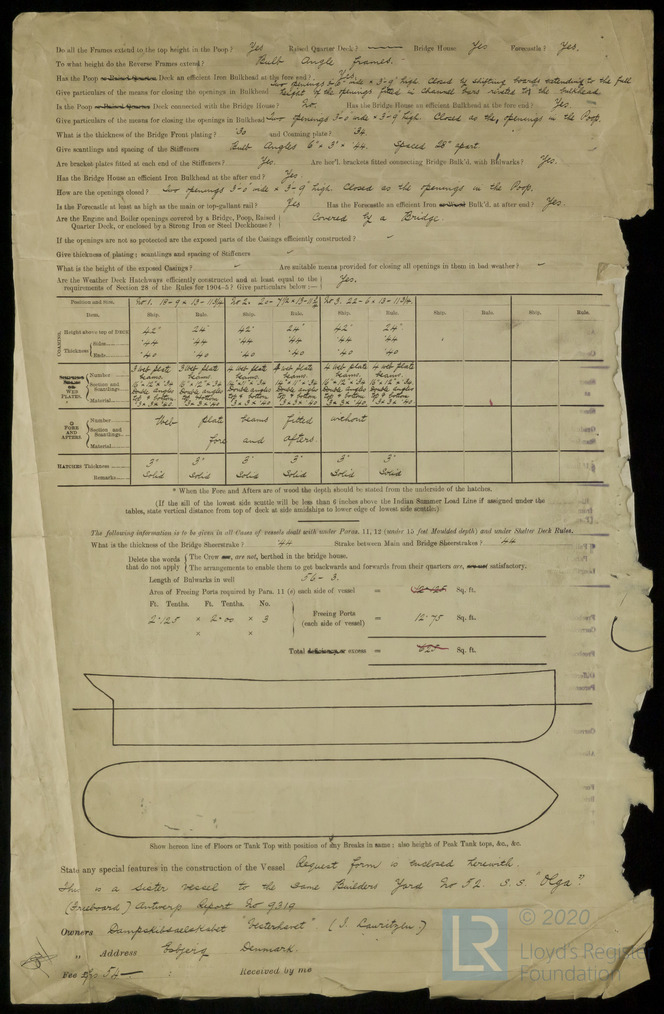 Do all the Frames extend to the top height in the Poop? Yes Raised Quarter Deck? — Bridge House Yes Forecastle? Yes.
To what height do the Reverse Frames extend? Bulb Angle frames.
Has the Poop or Raised Quarter Deck an efficient Iron Bulkhead at the fore end? Yes.
Give particulars of the means for closing the openings in Bulkhead Two openings 3-0 wide × 3-9 high. Closed by shifting boards extending to the full height of the openings fitted in channel bars riveted to the bulkhead
Is the Poop or Raised Quarter Deck connected with the Bridge House? No. Has the Bridge House an efficient Bulkhead at the fore end? Yes.
Give particulars of the means for closing the openings in Bulkhead Two openings 3-0 wide × 3-9 high. Closed as the openings in the Poop.
What is the thickness of the Bridge Front plating? ·30 and Coaming plate? ·34
Give scantlings and spacing of the Stiffeners Bulb Angles 6" × 3" × ·44. Spaced 28" apart.
Are bracket plates fitted at each end of the Stiffeners? Yes. Are hor'l. brackets fitted connecting Bridge Bulk'd. with Bulwarks? Yes.
Has the Bridge House an efficient Iron Bulkhead at the after end? Yes
How are the openings closed? Two openings 3-0 wide × 3-9 high. Closed as the openings in the Poop.
Is the Forecastle at least as high as the main or top-gallant rail? Yes Has the Forecastle an efficient Iron Bulk'd. at after end? Yes.
Are the Engine and Boiler openings covered by a Bridge, Poop, Raised Quarter Deck, or enclosed by a Strong Iron or Steel Deckhouse? Covered by a Bridge
If the openings are not so protected are the exposed parts of the Casings efficiently constructed?
Give thickness of plating; scantlings and spacing of Stiffeners
What is the height of the exposed Casings? Are suitable means provided for closing all openings in them in bad weather?
Are the Weather Deck Hatchways efficiently constructed and at least equal to the requirements of Section 28 of the Rules for 1904-5? Give particulars below:— Yes.
Position and Size. No 1. 18-9 × 13-11 3/4 No 2. 20-7 1/2 × 13-11 3/4 No 3. 22-6 × 13-11 3/4
Item. Ship. Rule. Ship. Rule. Ship. Rule. Ship. Rule. Ship. Rule.
COAMING. Height above top of DECK 42" 24" 42" 24" 42" 24"
Thickness Sides ·44 ·44 ·44 ·44 ·44 ·44
Ends ·40 ·40 ·40 ·40 ·40 ·40
WEB PLATES. Number 3 web plate beams 3 web plate beams 4 web plate beams 4 web plate beams 4 web plate beams 4 web plate beams
Section and Scantlings
Double angles top & bottom
Material 3×3×·40 3×3×·40 3×3×·40 3×3×·40 3×3×·40 3×3×·40
FORE AND AFTERS. Number Web plate beams fitted without
Section and Scantlings fore and afters
Material
HATCHES Thickness 3" 3" 3" 3" 3" 3"
Remarks Solid Solid Solid Solid Solid Solid
* When the Fore and Afters are of wood the depth should be stated from the underside of the hatches.
(If the sill of the lowest side scuttle will be less than 6 inches above the Indian Summer Load Line if assigned under the
tables, state vertical distance from top of deck at side amidships to lower edge of lowest side scuttle:)
The following information is to be given in all Cases of vessels dealt with under Paras. 11, 12 (under 15 feet Moulded depth) and under Shelter Deck Rules.
What is the thickness of the Bridge Sheerstrake? ·44 Strake between Main and Bridge Sheerstrakes? ·44
Delete the words that do not apply { The Crew are, are not, berthed in the bridge house.
The arrangements to enable them to get backwards and forwards from their quarters are, are not satisfactory.
Length of Bulwarks in well 56-3.
Area of Freeing Ports required by Para. 11 (e) each side of vessel = Sq. ft.
Ft. Tenths. Ft. Tenths. No.
2·125 × 2·00 × 3 Freeing Ports (each side of vessel) = 12·75 Sq. ft.
× ×
Total deficiency or excess = Sq. ft.
Show hereon line of Floors or Tank Top with position of any Breaks in same; also height of Peak Tank tops, &c., &c.
State any special features in the construction of the Vessel Request form is enclosed herewith.
This is a sister vessel to the same Builders Yard No 52. S.S. "Olga".
(Freeboard) Antwerp Report No 9319
Owners Dampskibsselskabet "Vesterhavet" (J. Lauritzen.)
" Address Esbjerg Denmark.
Fee 54— : Received by me
LR © 2020
Lloyd's Register
Foundation